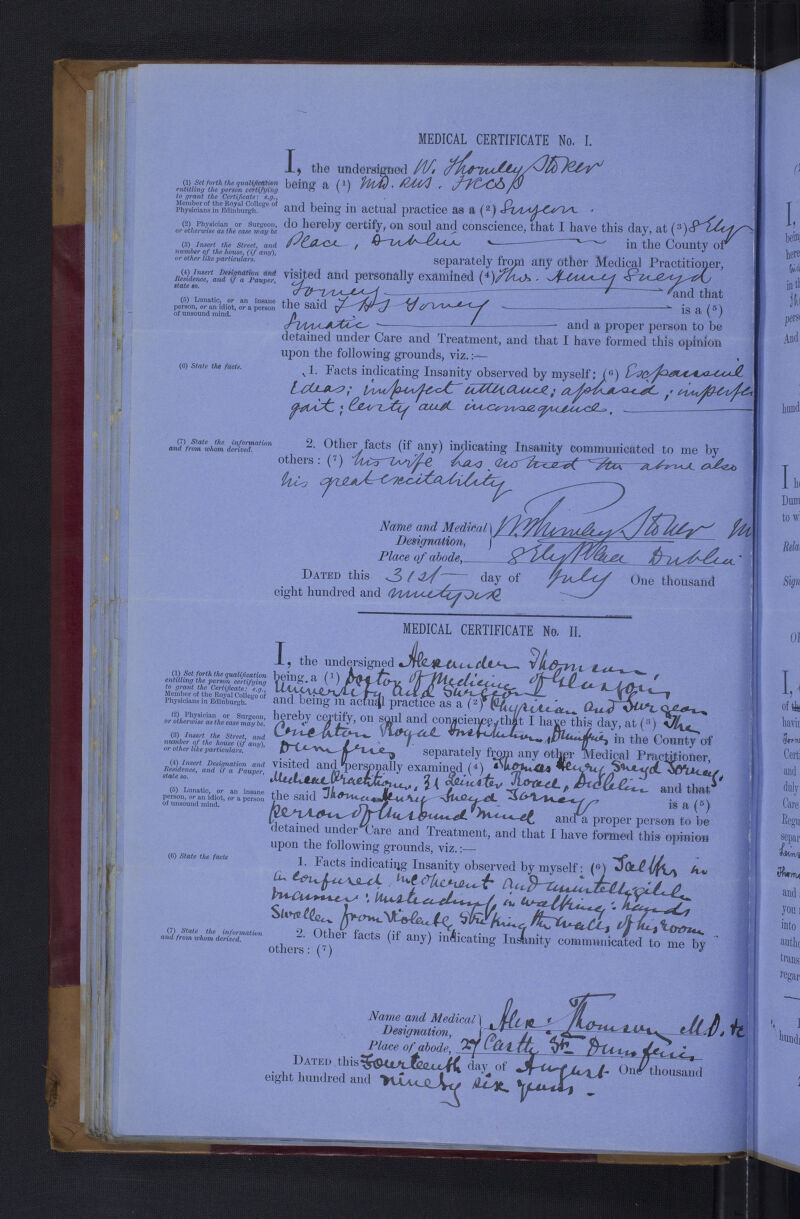 MEDICAL CERTIFICATE No. I.
I, the undersigned W. Thornley Stoker
(1) Set forth the qualification
entitling the person certifying
to grant the Certificate: e.g.,
Member of the Royal College of
Physicians in Edinburgh.
being a (1) MD. RUI. FRCSI
and being in actual practice as a (2) Surgeon.
(2) Physician or Surgeon,
or otherwise as the case may be
do hereby certify, on soul and conscience, that I have this day, at (3) 8 Ely
(3) Insert the Street, and
number of the house, (if any),
or other like particulars.
Place, Dublin in the County of
separately from any other Medical Practitioner,
(4) Insert Designation and
Residence, and if a Pauper,
state so.
visited and personally examined (4) Thos. Henry Sneyd
Torney and that
(5) Lunatic, or an insane
person, or an idiot, or a person
of unsound mind.
the said T H S Torney is a (5)
Lunatic and a proper person to be
detained under Care and Treatment, and that I have formed this opinion
upon the following grounds, viz.:—
(6) State the facts.
1. Facts indicating Insanity observed by myself; (6)
ideas; imperfect utterance; aphasia; imperfect
gait; levity and inconsequence.
(7) State the information
and from whom derived.
2. Other facts (if any) indicating Insanity communicated to me by
others: (7) his wife has noticed the above also
his great excitability
Name and Medical
Designation,
W. Thornley Stoker M
Place of abode, 8 Ely Place Dublin
DATED this 31st day of July One thousand
eight hundred and ninety six
MEDICAL CERTIFICATE No. II.
I, the undersigned Alexander Thomson,
(1) Set forth the qualification
entitling the person certifying
to grant the Certificate: e.g.,
Member of the Royal College of
Physicians in Edinburgh.
being a (1) Doctor of Medicine of Glasgow
University and Surgeon
and being in actual practice as a (2) Physician and Surgeon
(2) Physician or Surgeon,
or otherwise as the case may be.
hereby certify, on soul and conscience, that I have this day, at (3) The
(3) Insert the Street, and
number of the house (if any),
or other like particulars.
Crichton Royal Institution, Dumfries in the County of
Dumfries separately from any other Medical Practitioner,
(4) Insert Designation and
Residence, and if a Pauper,
state so.
visited and personally examined (4) Thomas Henry Sneyd Torney,
Medical Practitioner, 31 Leinster Road, Dublin and that
(5) Lunatic, or an insane
person, or an idiot, or a person
of unsound mind.
the said Thomas Henry Sneyd Torney is a (5)
person of Unsound mind and a proper person to be
detained under Care and Treatment, and that I have formed this opinion
upon the following grounds, viz.:—
(6) State the facts
1. Facts indicating Insanity observed by myself: (6) Talks in
a confused incoherent and unintelligible
manner: unsteadiness in walking: hands
swollen from violently striking the walls of his room
(7) State the information
and from whom derived.
2. Other facts (if any) indicating Insanity communicated to me by
others: (7)
Name and Medical
Designation,
Alex: Thomson M.D. &c
Place of abode, 27 Castle St Dumfries
DATED this Fourteenth day of August One thousand
eight hundred and ninety six years.